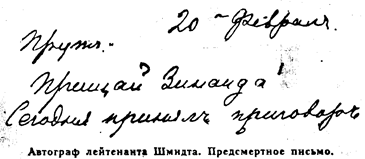 20 – Февраля.
Прутъ.
Прощай Зинаида!
Сегодня принялъ приговоръ
Автограф лейтенанта Шмидта. Предсмертное письмо.